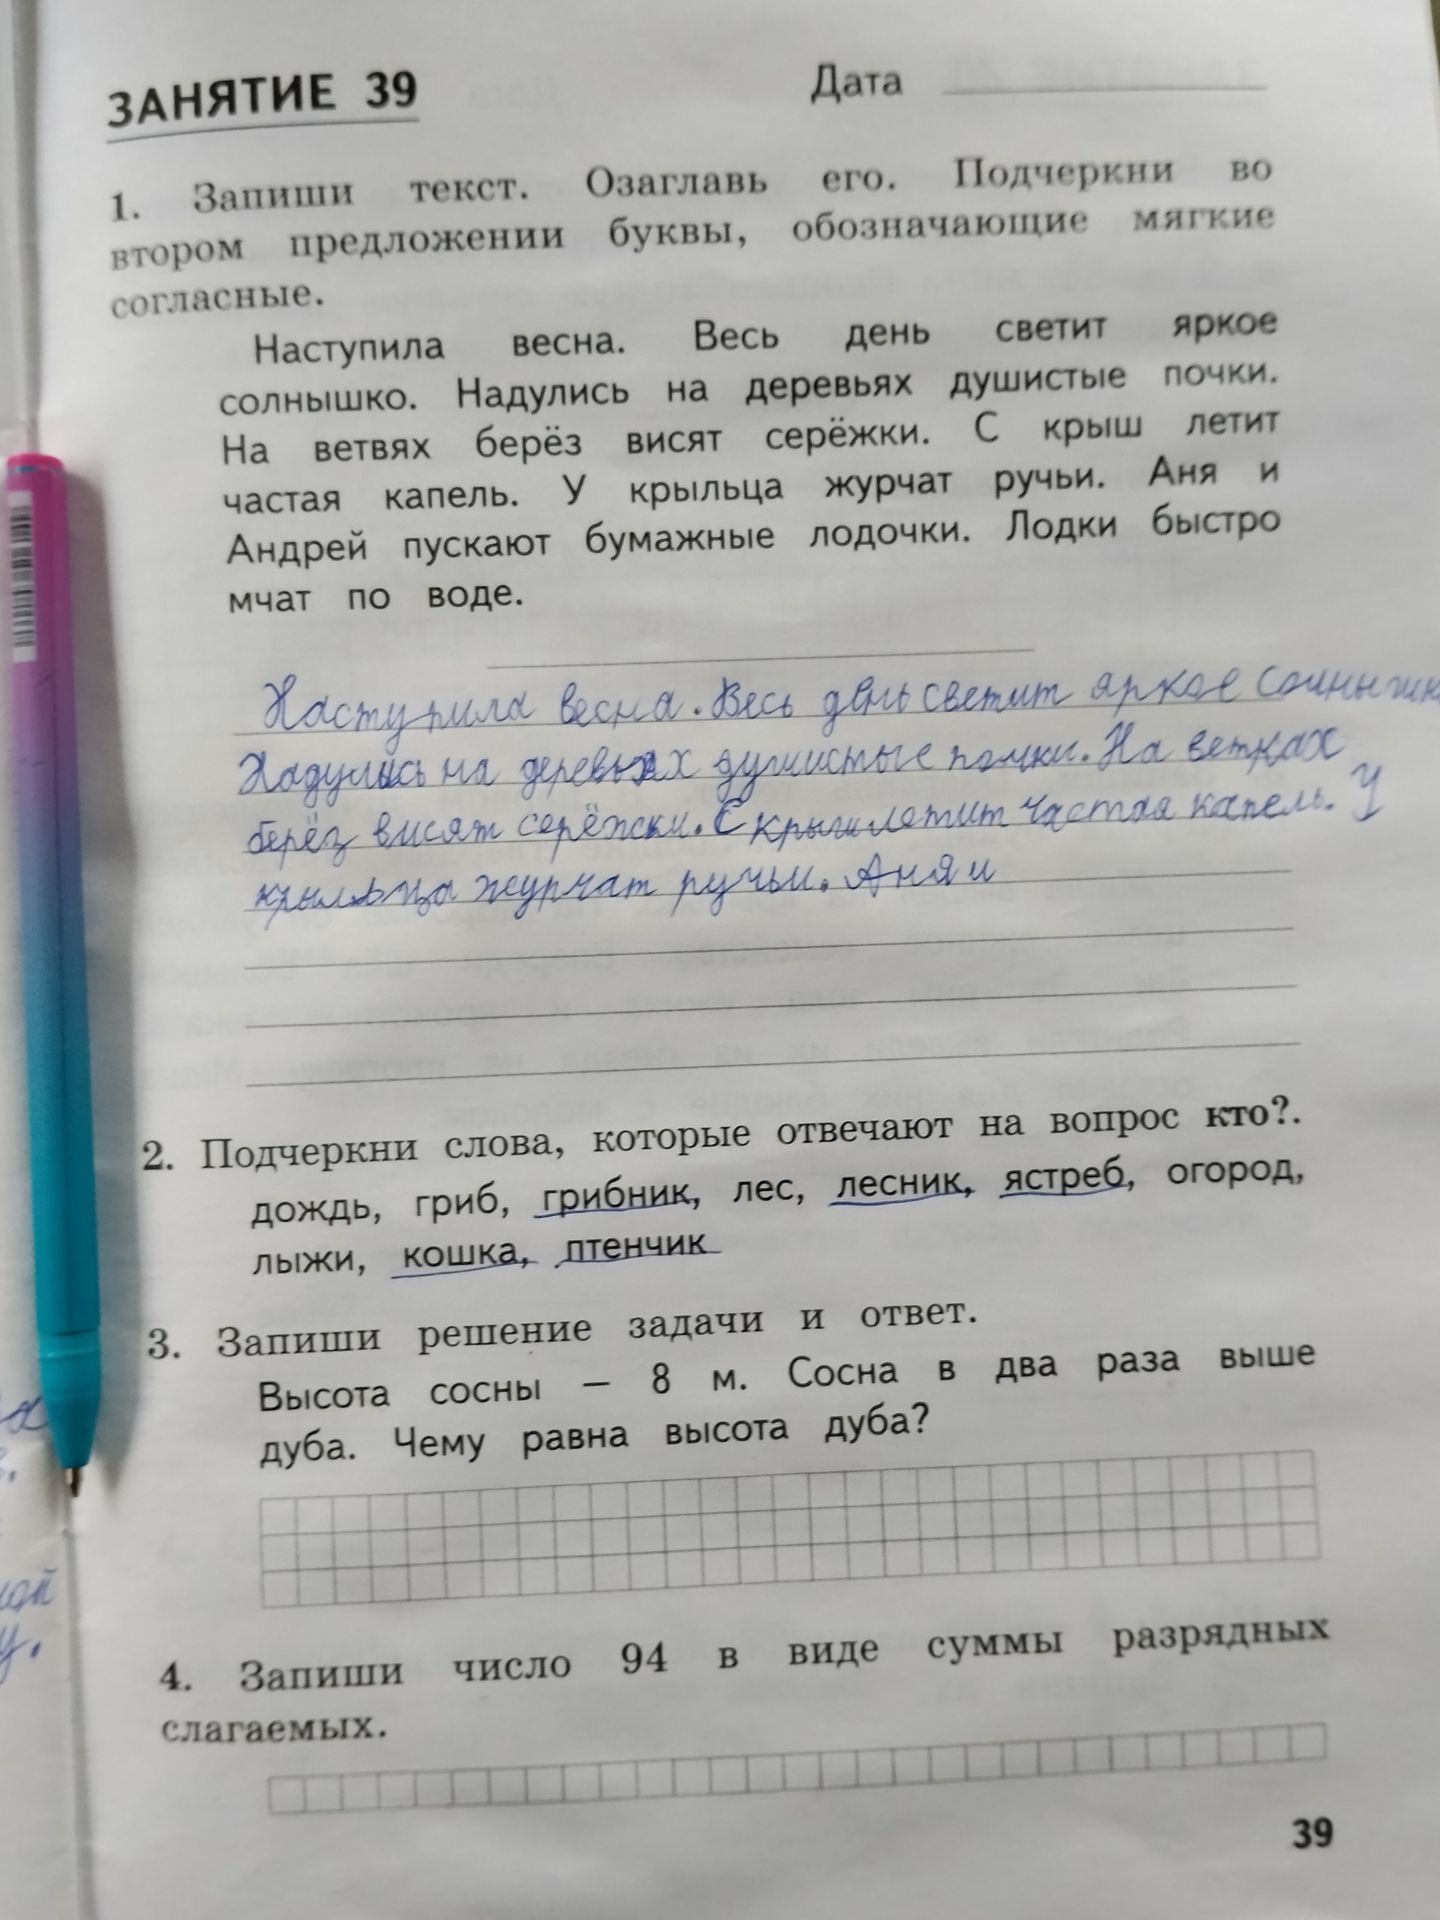 ЗАНЯТИЕ 39 Дата
1. Запиши текст. Озаглавь его. Подчеркни во
втором предложении буквы, обозначающие мягкие
согласные.
Наступила весна. Весь день светит яркое
солнышко. Надулись на деревьях душистые почки.
На ветвях берёз висят серёжки. С крыш летит
частая капель. У крыльца журчат ручьи. Аня и
Андрей пускают бумажные лодочки. Лодки быстро
мчат по воде.
Наступила весна. Весь день светит яркое
Надулись на деревьях душистые почки. На ветках
берёз висят серёжки. С крыш летит частая капель. У
крыльца журчат ручьи. Аня и
2. Подчеркни слова, которые отвечают на вопрос кто?.
дождь, гриб, грибник, лес, лесник, ястреб, огород,
лыжи, кошка, птенчик
3. Запиши решение задачи и ответ.
Высота сосны — 8 м. Сосна в два раза выше
дуба. Чему равна высота дуба?
4. Запиши число 94 в виде суммы разрядных
слагаемых.
39